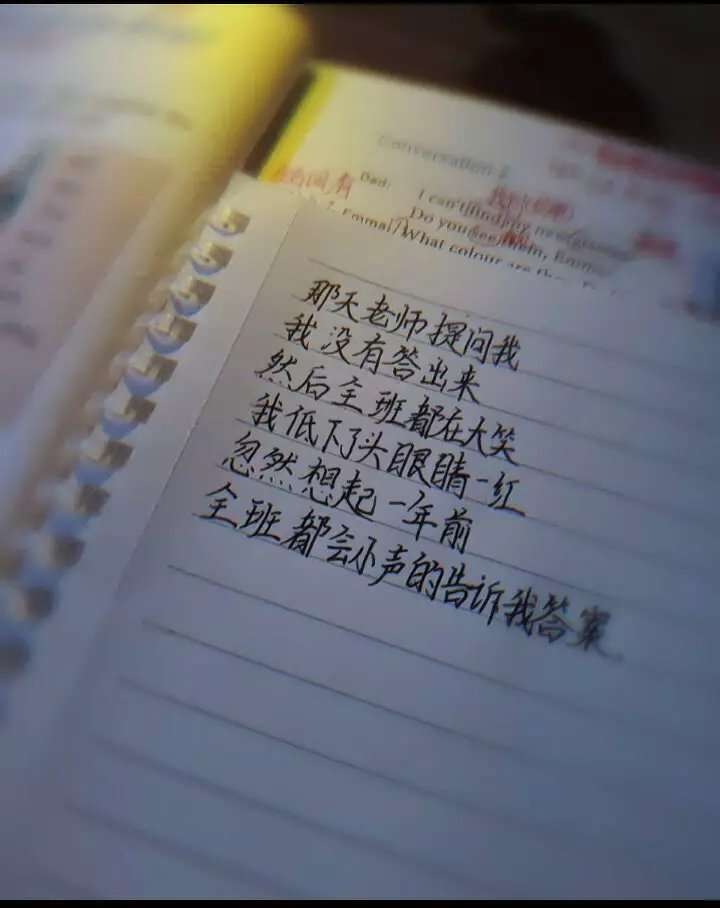 Conversation 2
Dad:
I can't find my new
Do you see them, Emma
Emma! What colour are the
那天老师提问我
我没有答出来
然后全班都在大笑
我低下了头眼睛一红
忽然想起一年前
全班都会小声的告诉我答案